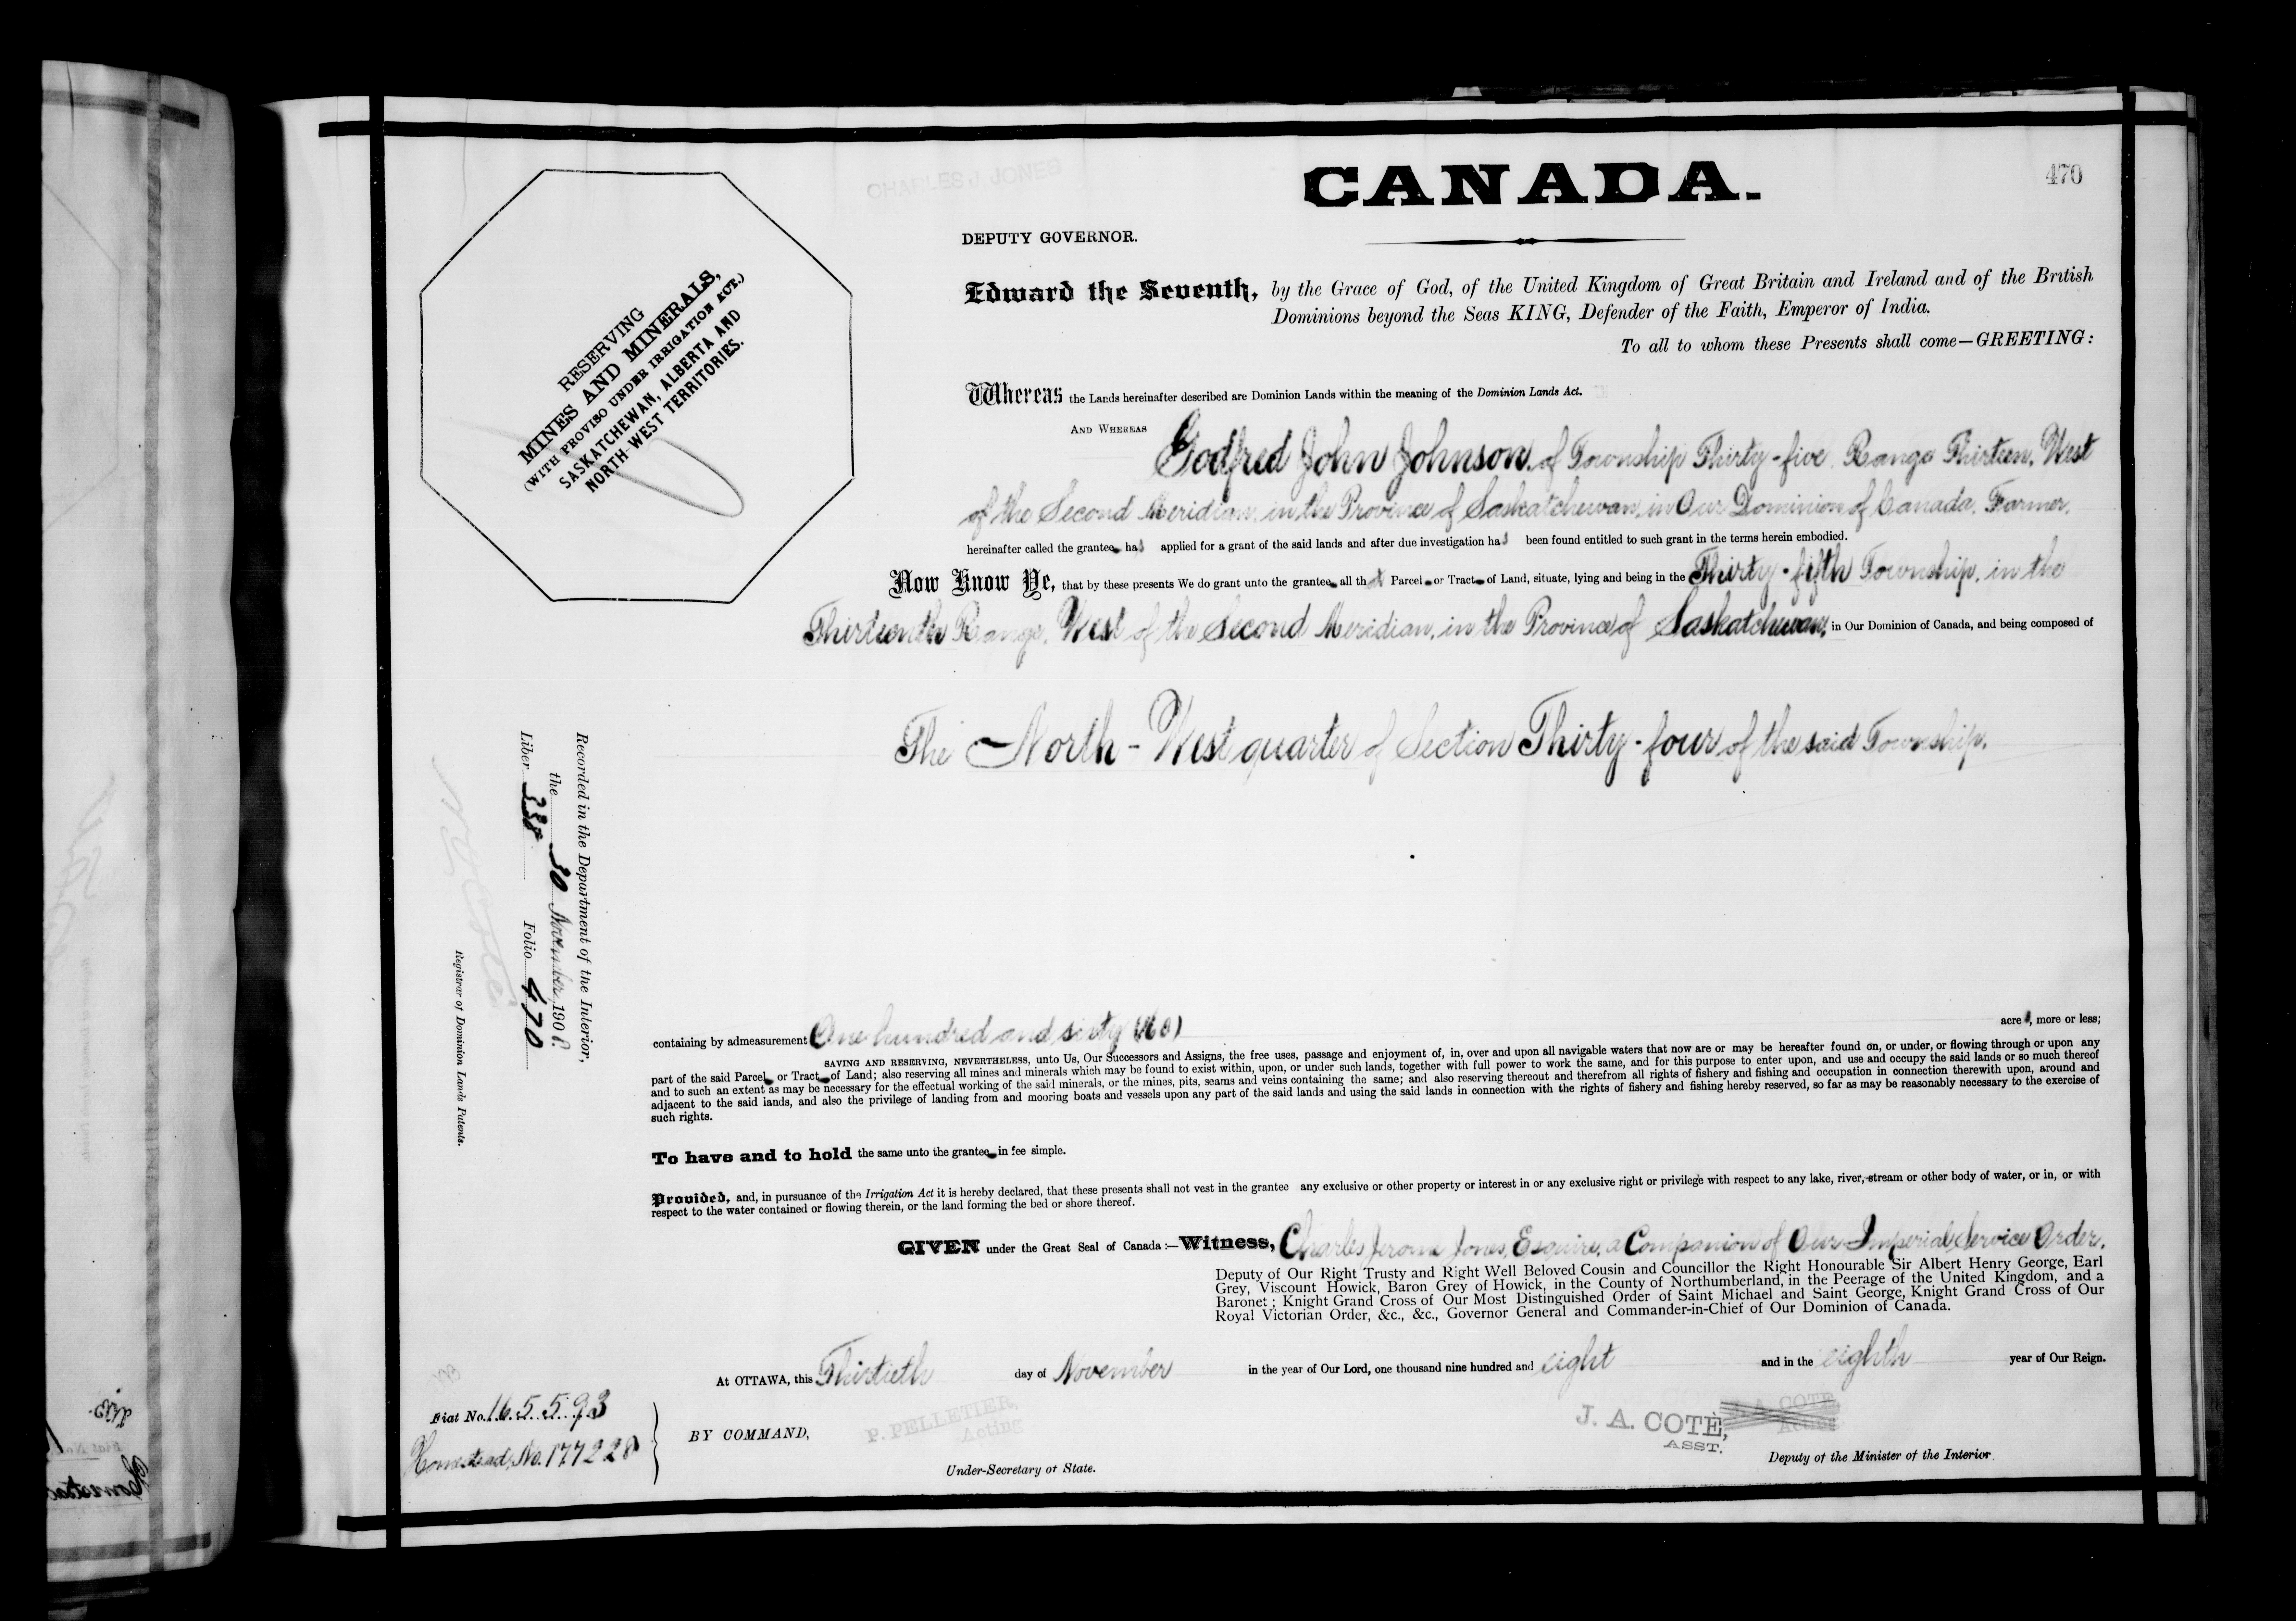 CHARLES J. JONES
CANADA.
470
DEPUTY GOVERNOR.
Edward the Seventh, by the Grace of God, of the United Kingdom of Great Britain and Ireland and of the British
Dominions beyond the Seas KING, Defender of the Faith, Emperor of India.
To all to whom these Presents shall come—GREETING:
RESERVING
MINES AND MINERALS,
(WITH PROVISO UNDER IRRIGATION ACT.)
SASKATCHEWAN, ALBERTA AND
NORTH-WEST TERRITORIES.
Whereas the Lands hereinafter described are Dominion Lands within the meaning of the Dominion Lands Act.
AND WHEREAS Godfred John Johnson, of Township Thirty-five, Range Thirteen, West
of the Second Meridian, in the Province of Saskatchewan, in Our Dominion of Canada, Farmer,
hereinafter called the grantee has applied for a grant of the said lands and after due investigation has been found entitled to such grant in the terms herein embodied.
Now Know Ye, that by these presents We do grant unto the grantee all that Parcel or Tract of Land, situate, lying and being in the Thirty-fifth Township, in the
Thirteenth Range, West of the Second Meridian, in the Province of Saskatchewan, in Our Dominion of Canada, and being composed of
The North-West quarter of Section Thirty-four of the said Township.
Recorded in the Department of the Interior,
the 30 November 1908.
Liber 338 Folio 470
Registrar of Dominion Lands Patents.
containing by admeasurement One hundred and sixty (160) acres, more or less;
SAVING AND RESERVING, NEVERTHELESS, unto Us, Our Successors and Assigns, the free uses, passage and enjoyment of, in, over and upon all navigable waters that now are or may be hereafter found on, or under, or flowing through or upon any
part of the said Parcel or Tract of Land; also reserving all mines and minerals which may be found to exist within, upon, or under such lands, together with full power to work the same, and for this purpose to enter upon, and use and occupy the said lands or so much thereof
and to such an extent as may be necessary for the effectual working of the said minerals, or the mines, pits, seams and veins containing the same; and also reserving thereout and therefrom all rights of fishery and fishing and occupation in connection therewith upon, around and
adjacent to the said lands, and also the privilege of landing from and mooring boats and vessels upon any part of the said lands and using the said lands in connection with the rights of fishery and fishing hereby reserved, so far as may be reasonably necessary to the exercise of
such rights.
To have and to hold the same unto the grantee in fee simple.
Provided, and, in pursuance of the Irrigation Act it is hereby declared, that these presents shall not vest in the grantee any exclusive or other property or interest in or any exclusive right or privilege with respect to any lake, river, stream or other body of water, or in, or with
respect to the water contained or flowing therein, or the land forming the bed or shore thereof.
GIVEN under the Great Seal of Canada:—Witness, Charles Jerome Jones, Esquire, a Companion of Our Imperial Service Order,
Deputy of Our Right Trusty and Right Well Beloved Cousin and Councillor the Right Honourable Sir Albert Henry George, Earl
Grey, Viscount Howick, Baron Grey of Howick, in the County of Northumberland, in the Peerage of the United Kingdom, and a
Baronet; Knight Grand Cross of Our Most Distinguished Order of Saint Michael and Saint George, Knight Grand Cross of Our
Royal Victorian Order, &c., &c., Governor General and Commander-in-Chief of Our Dominion of Canada.
At OTTAWA, this Thirtieth day of November in the year of Our Lord, one thousand nine hundred and eight and in the eighth year of Our Reign.
Fiat No. 165593
Homestead, No. 177228
BY COMMAND,
P. PELLETIER,
Acting
Under-Secretary of State.
J. A. COTÈ, J. A. COTE
ASST. Acting
Deputy of the Minister of the Interior.